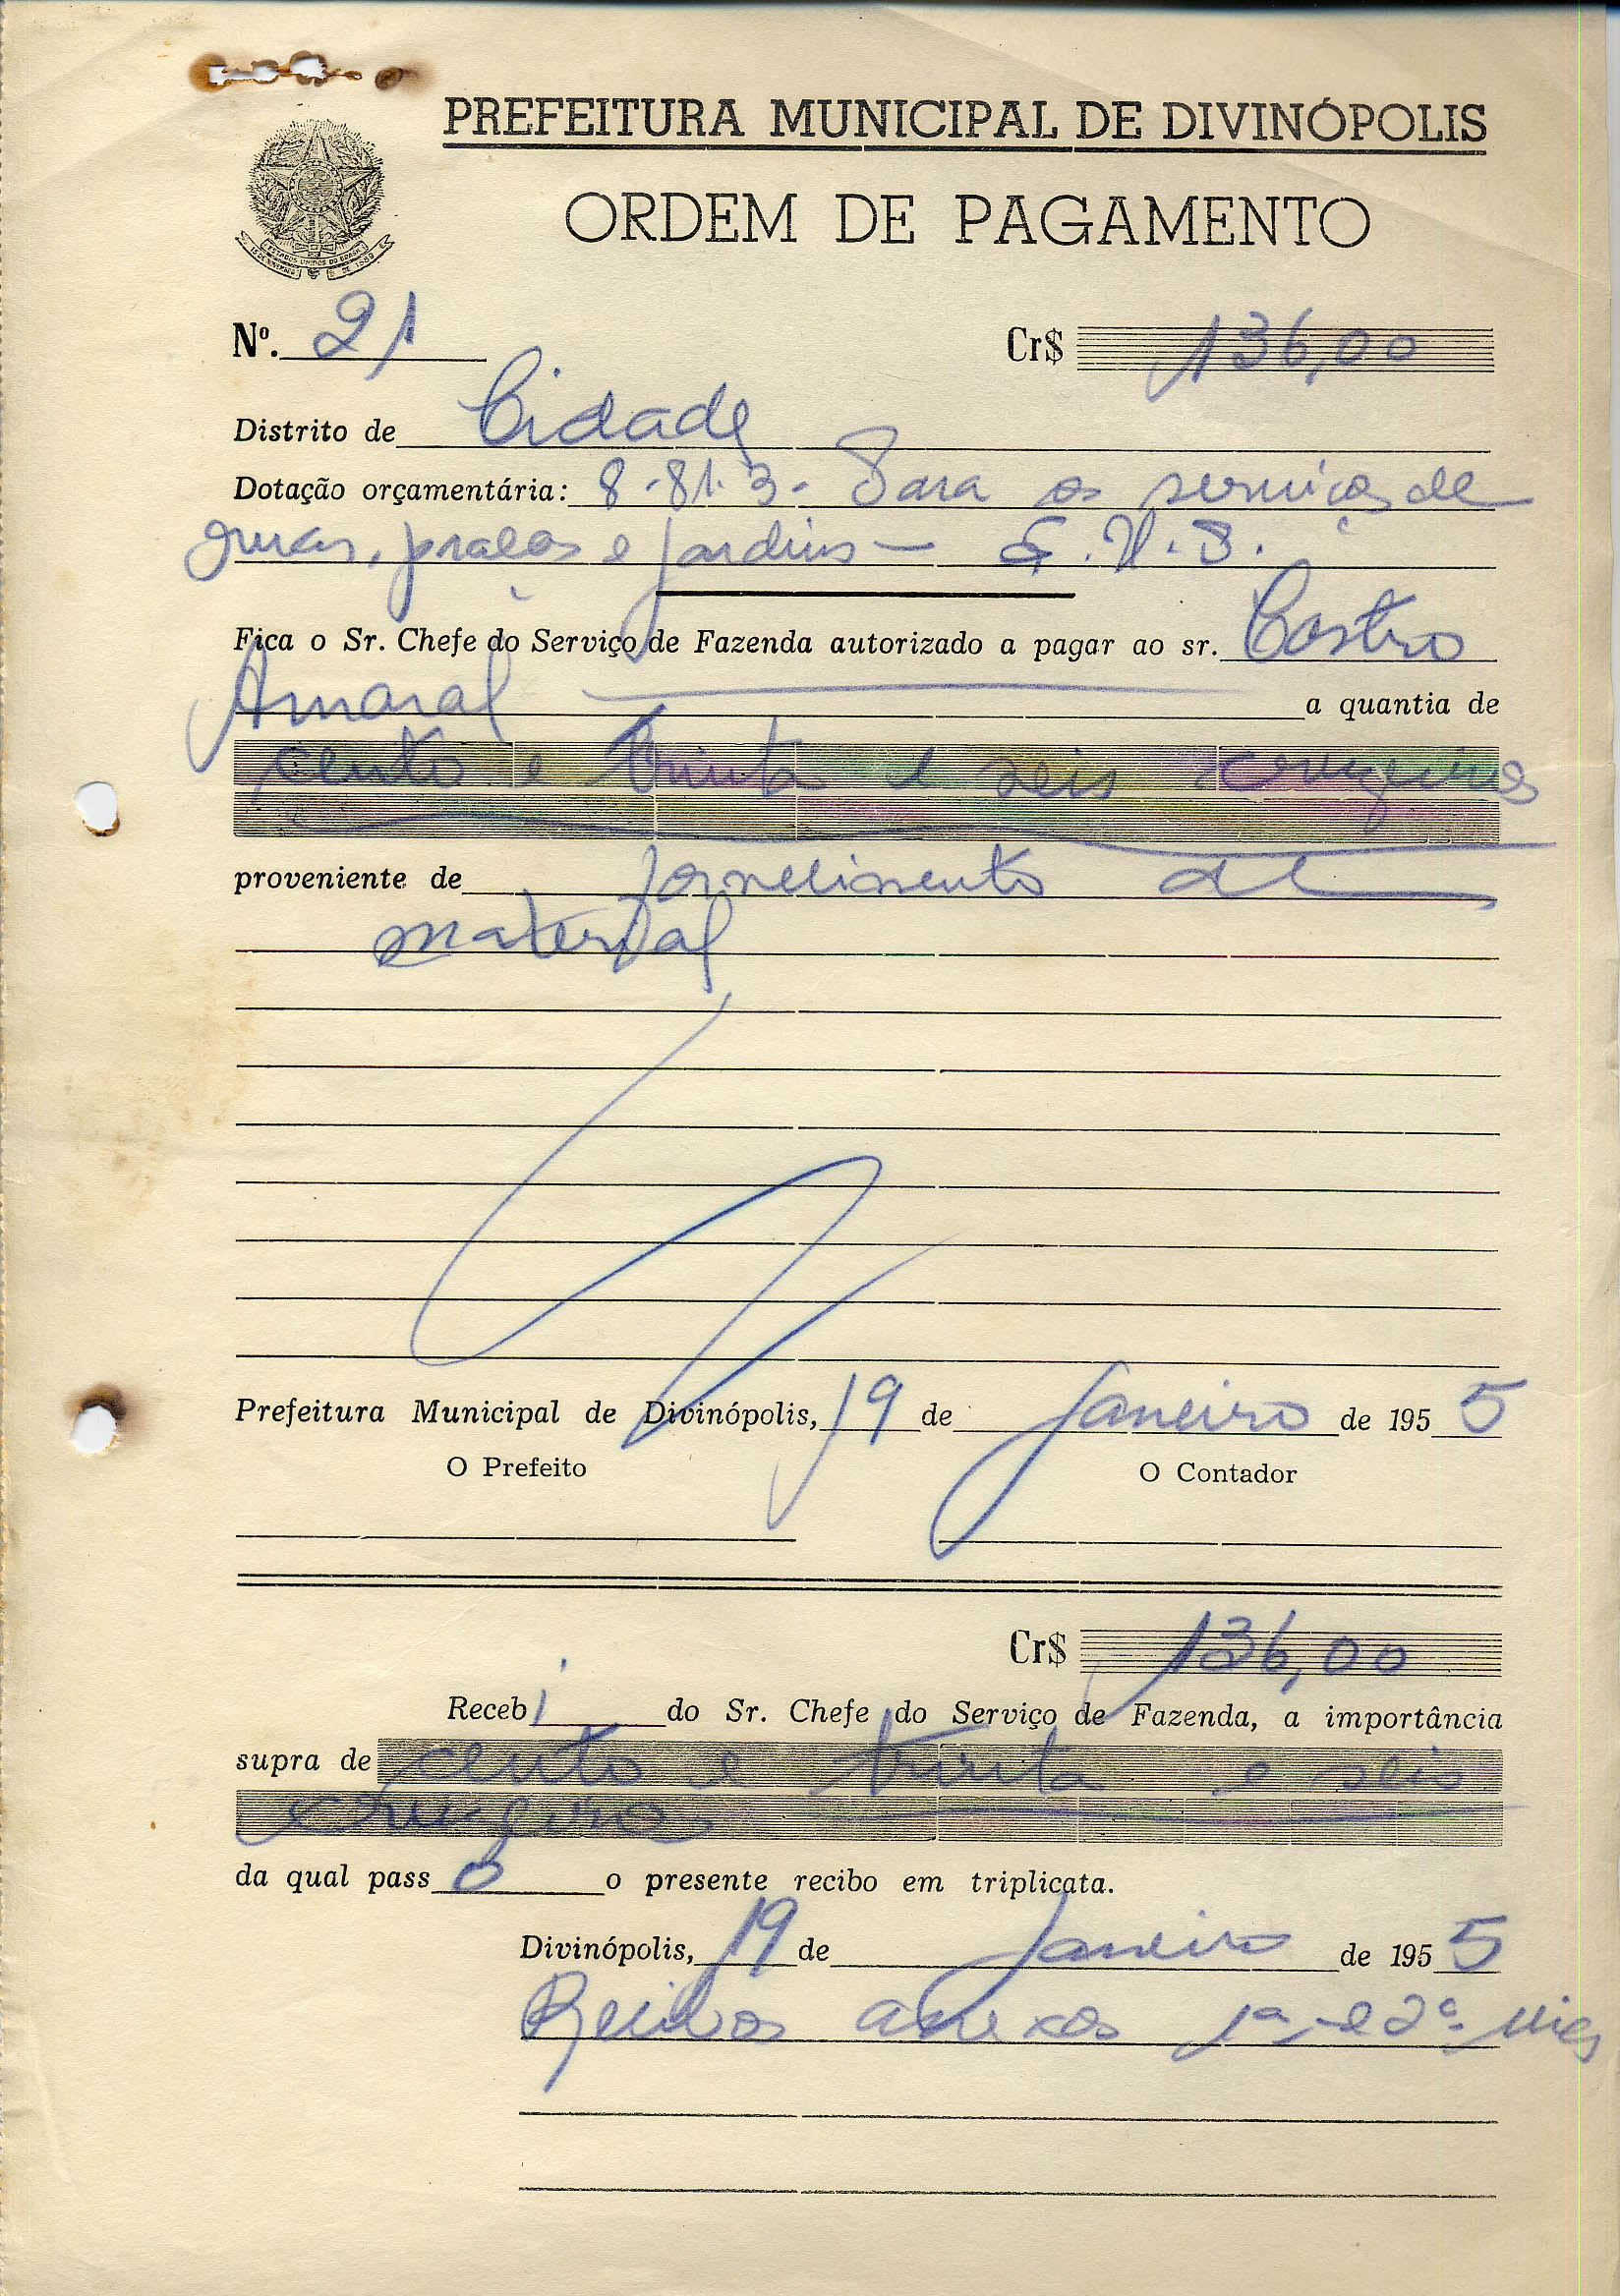 PREFEITURA MUNICIPAL DE DIVINÓPOLIS
ORDEM DE PAGAMENTO
ESTADOS UNIDOS DO BRASIL
15 DE NOVEMBRO DE 1889
Nº. 21 Cr$ 136,00
Distrito de Cidade
Dotação orçamentária: 8-81.3- Para os serviços de
ruas, praças e jardins —
Fica o Sr. Chefe do Serviço de Fazenda autorizado a pagar ao sr. Castro
Amaral a quantia de
cento e trinta e seis cruzeiros
proveniente de fornecimento de
material
Prefeitura Municipal de Divinópolis, 19 de Janeiro de 1955
O Prefeito O Contador
Cr$ 136,00
Recebi do Sr. Chefe do Serviço de Fazenda, a importância
supra de cento e trinta e seis
cruzeiros
da qual passo o presente recibo em triplicata.
Divinópolis, 19 de Janeiro de 1955
Recibos anexos 1ª e 2ª vias